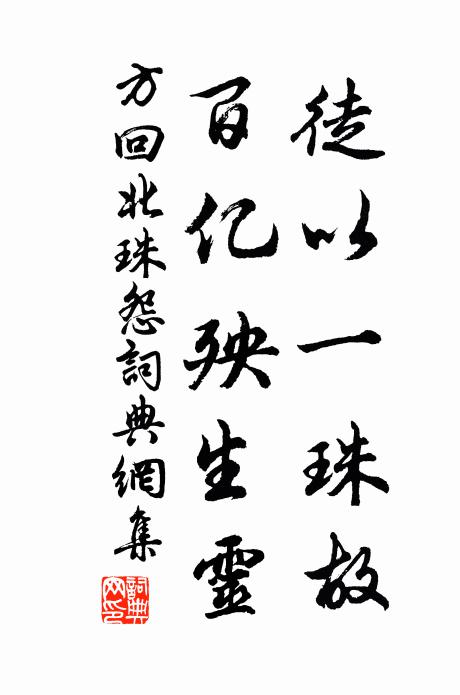 徒以一珠故
百亿殃生靈
方回北珠怨詞典網集
詞典網印